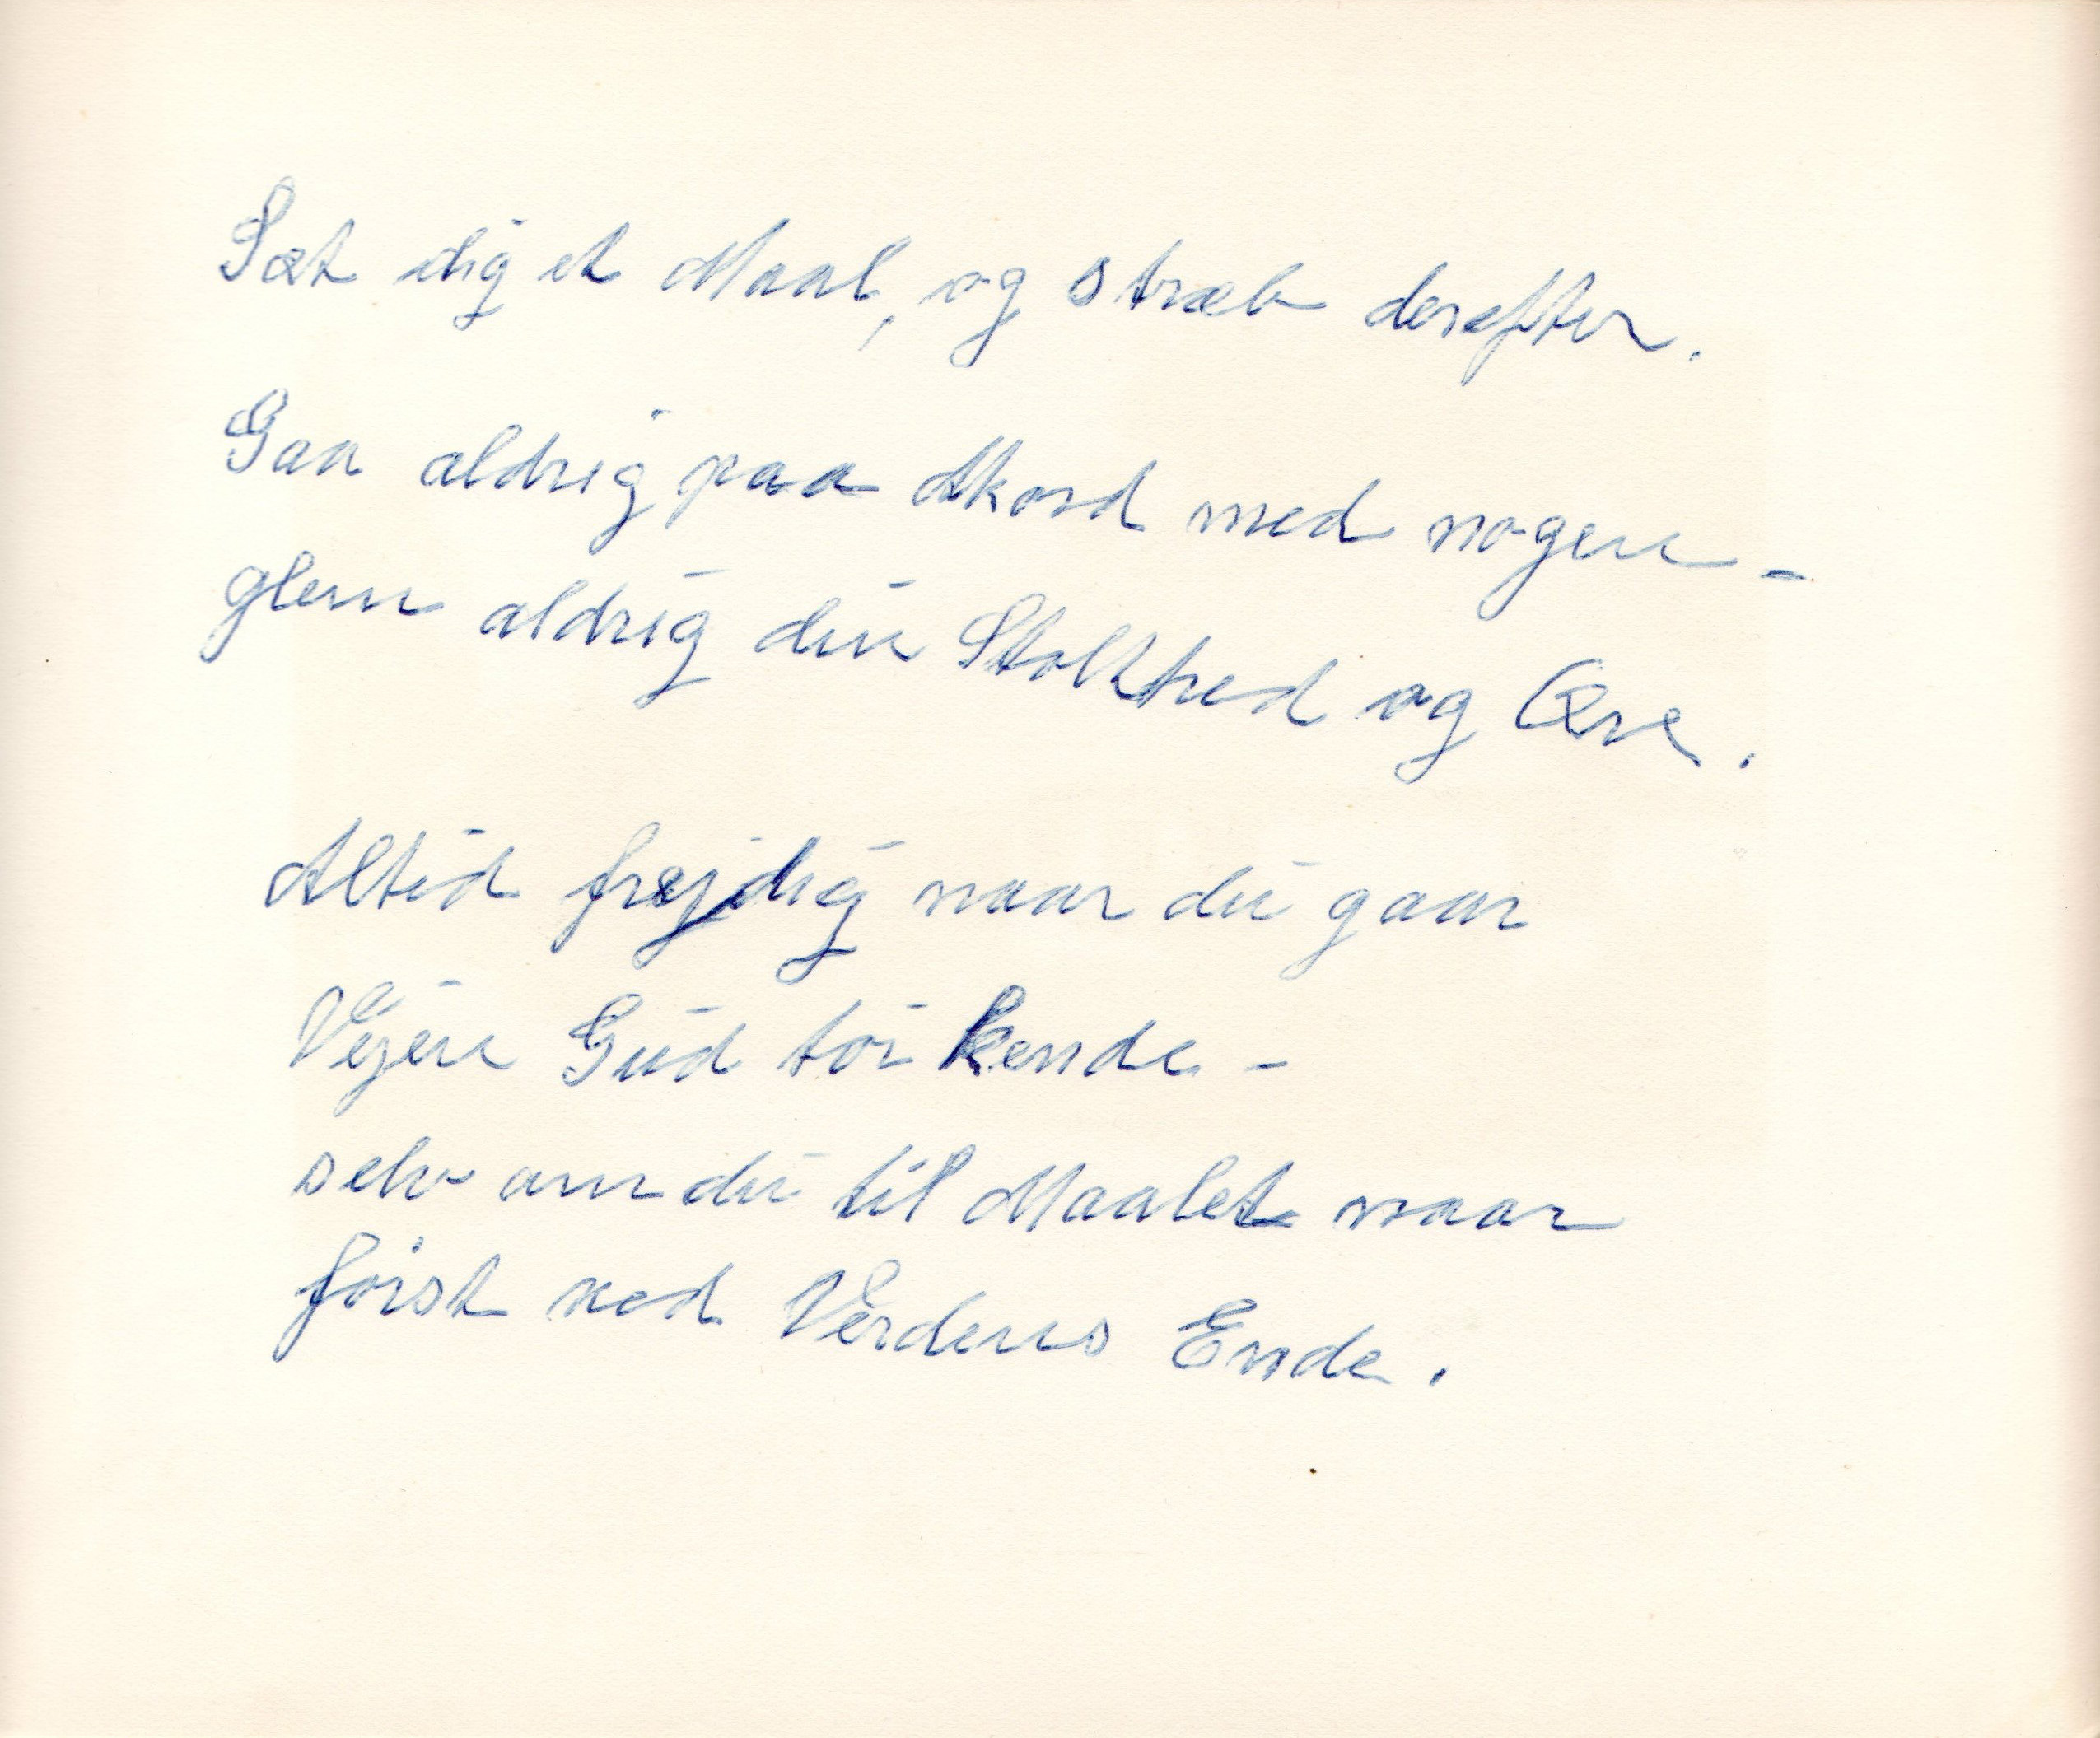 Sæt dig et Maal, og stræb derefter.
Gaa aldrig paa Akord med nogen -
glem aldrig din Stolthed og Ære.
Altid frejdig naar du gaar
Vejen Gud tør kende -
selv om du til Maalet naar
først ved Verdens Ende.